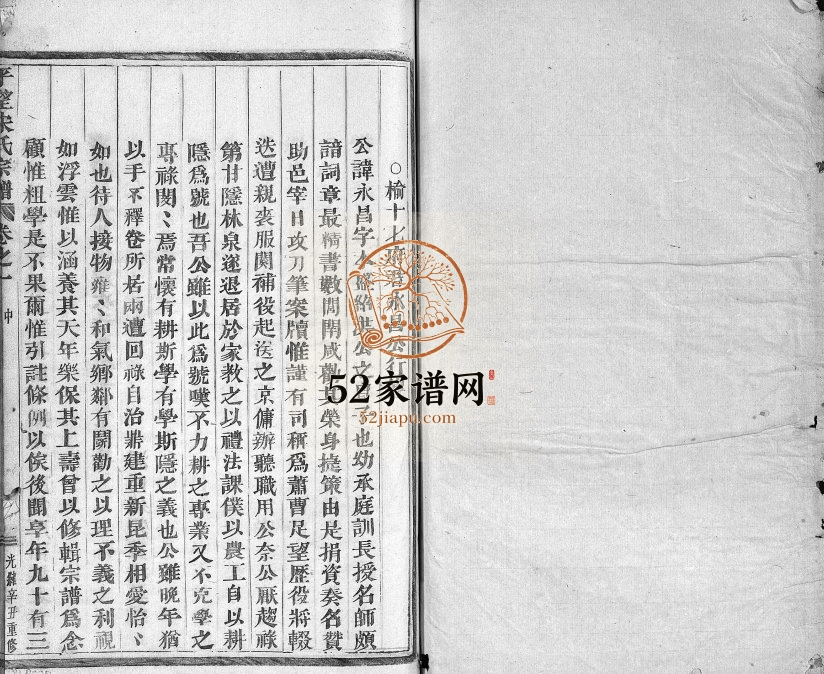 ○榆十七府君永昌公行
公諱永昌字公之子也幼承庭訓長授名師頗
諳詞章最精書數閭閈咸觀其榮身捷策由是捐資奏名贊
助邑宰日攻刀筆案牘惟謹有司稱爲蕭曹足望歷役將輟
迭遭親喪服闋補役起送之京傭辦聽職用公奈公厭趨祿
第甘隱林泉遂退居於家教之以禮法課僕以農工自以耕
隱爲號也吾公雖以此爲號嘆不力耕之專業又不克學之
專祿閔〻焉常懷有耕斯學有學斯隱之義也公雖晚年猶
以手不釋卷所居兩遭回祿自治鼎建重新昆季相愛怡〻
如也待人接物雍〻和氣鄉鄰有鬬勸之以理不義之利視
如浮雲惟以涵養其天年樂保其上壽曾以修輯宗譜爲念
顧惟粗學是不果爾惟引註條例以俟後聞享年九十有三
平望宋氏宗譜 卷之一 中 光緒辛丑重修
52家谱网
52jiapu.com